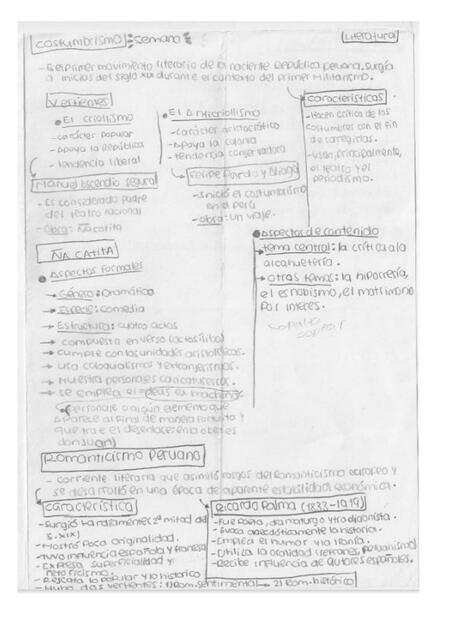 Costumbrismo: semana 8
Literatura
- Es el primer movimiento literario de la naciente República peruana. Surgió
a inicios del siglo XIX durante el contexto del primer militarismo.
Vertientes
• El criollismo
- carácter popular
- Apoya la República
- tendencia liberal
Manuel Ascencio Segura
- Es considerado padre
del teatro nacional
- Obra: Ña catita
• El Anticriollismo
- Carácter aristocrático
- Apoya la colonia
- tendencia conservadora
Felipe Pardo y Aliaga
- Inició el costumbrismo
en el Perú
- obra: un viaje.
Características
- Hacen crítica de las
costumbres con el fin
de corregirlas.
- Usan, principalmente,
el teatro y el
periodismo.
ÑA CATITA
• Aspectos formales
→ Género: Dramático
→ Especie: comedia
→ Estructura: cuatro actos
→ compuesta en verso (octosílabo)
→ cumple con las unidades aristotélicas.
→ usa coloquialismos y extranjerismos.
→ Muestra personajes caricaturescos.
→ se emplea el "deus ex machina"
(Personaje o algún elemento que
aparece al final de manera fortuita y
que trae el desenlace en la obra es
don Juan)
• Aspectos de contenido
→ tema central: la crítica a la
alcahuetería.
→ otros temas: la hipocresía,
el esnobismo, el matrimonio
por interés.
Romanticismo Peruano
- corriente literaria que asimiló rasgos del Romanticismo europeo y
se desarrolló en una época de aparente estabilidad económica.
característica
- Surgió tardíamente 2ª mitad del
s. XIX)
- Mostró Poca originalidad.
- tuvo influencia española y francesa
- Expresa superficialidad y
retoricismo.
- Rescata lo popular y lo histórico
- Hubo dos vertientes: 1) Rom. sentimental → 2) Rom. histórico
Ricardo Palma (1833-1919)
- Fue Poeta, dramaturgo y tradicionista.
- Evoca anecdóticamente la historia.
- Emplea el humor y la ironía.
- Utiliza la oralidad (refranes, peruanismo)
- Recibe influencia de autores españoles.